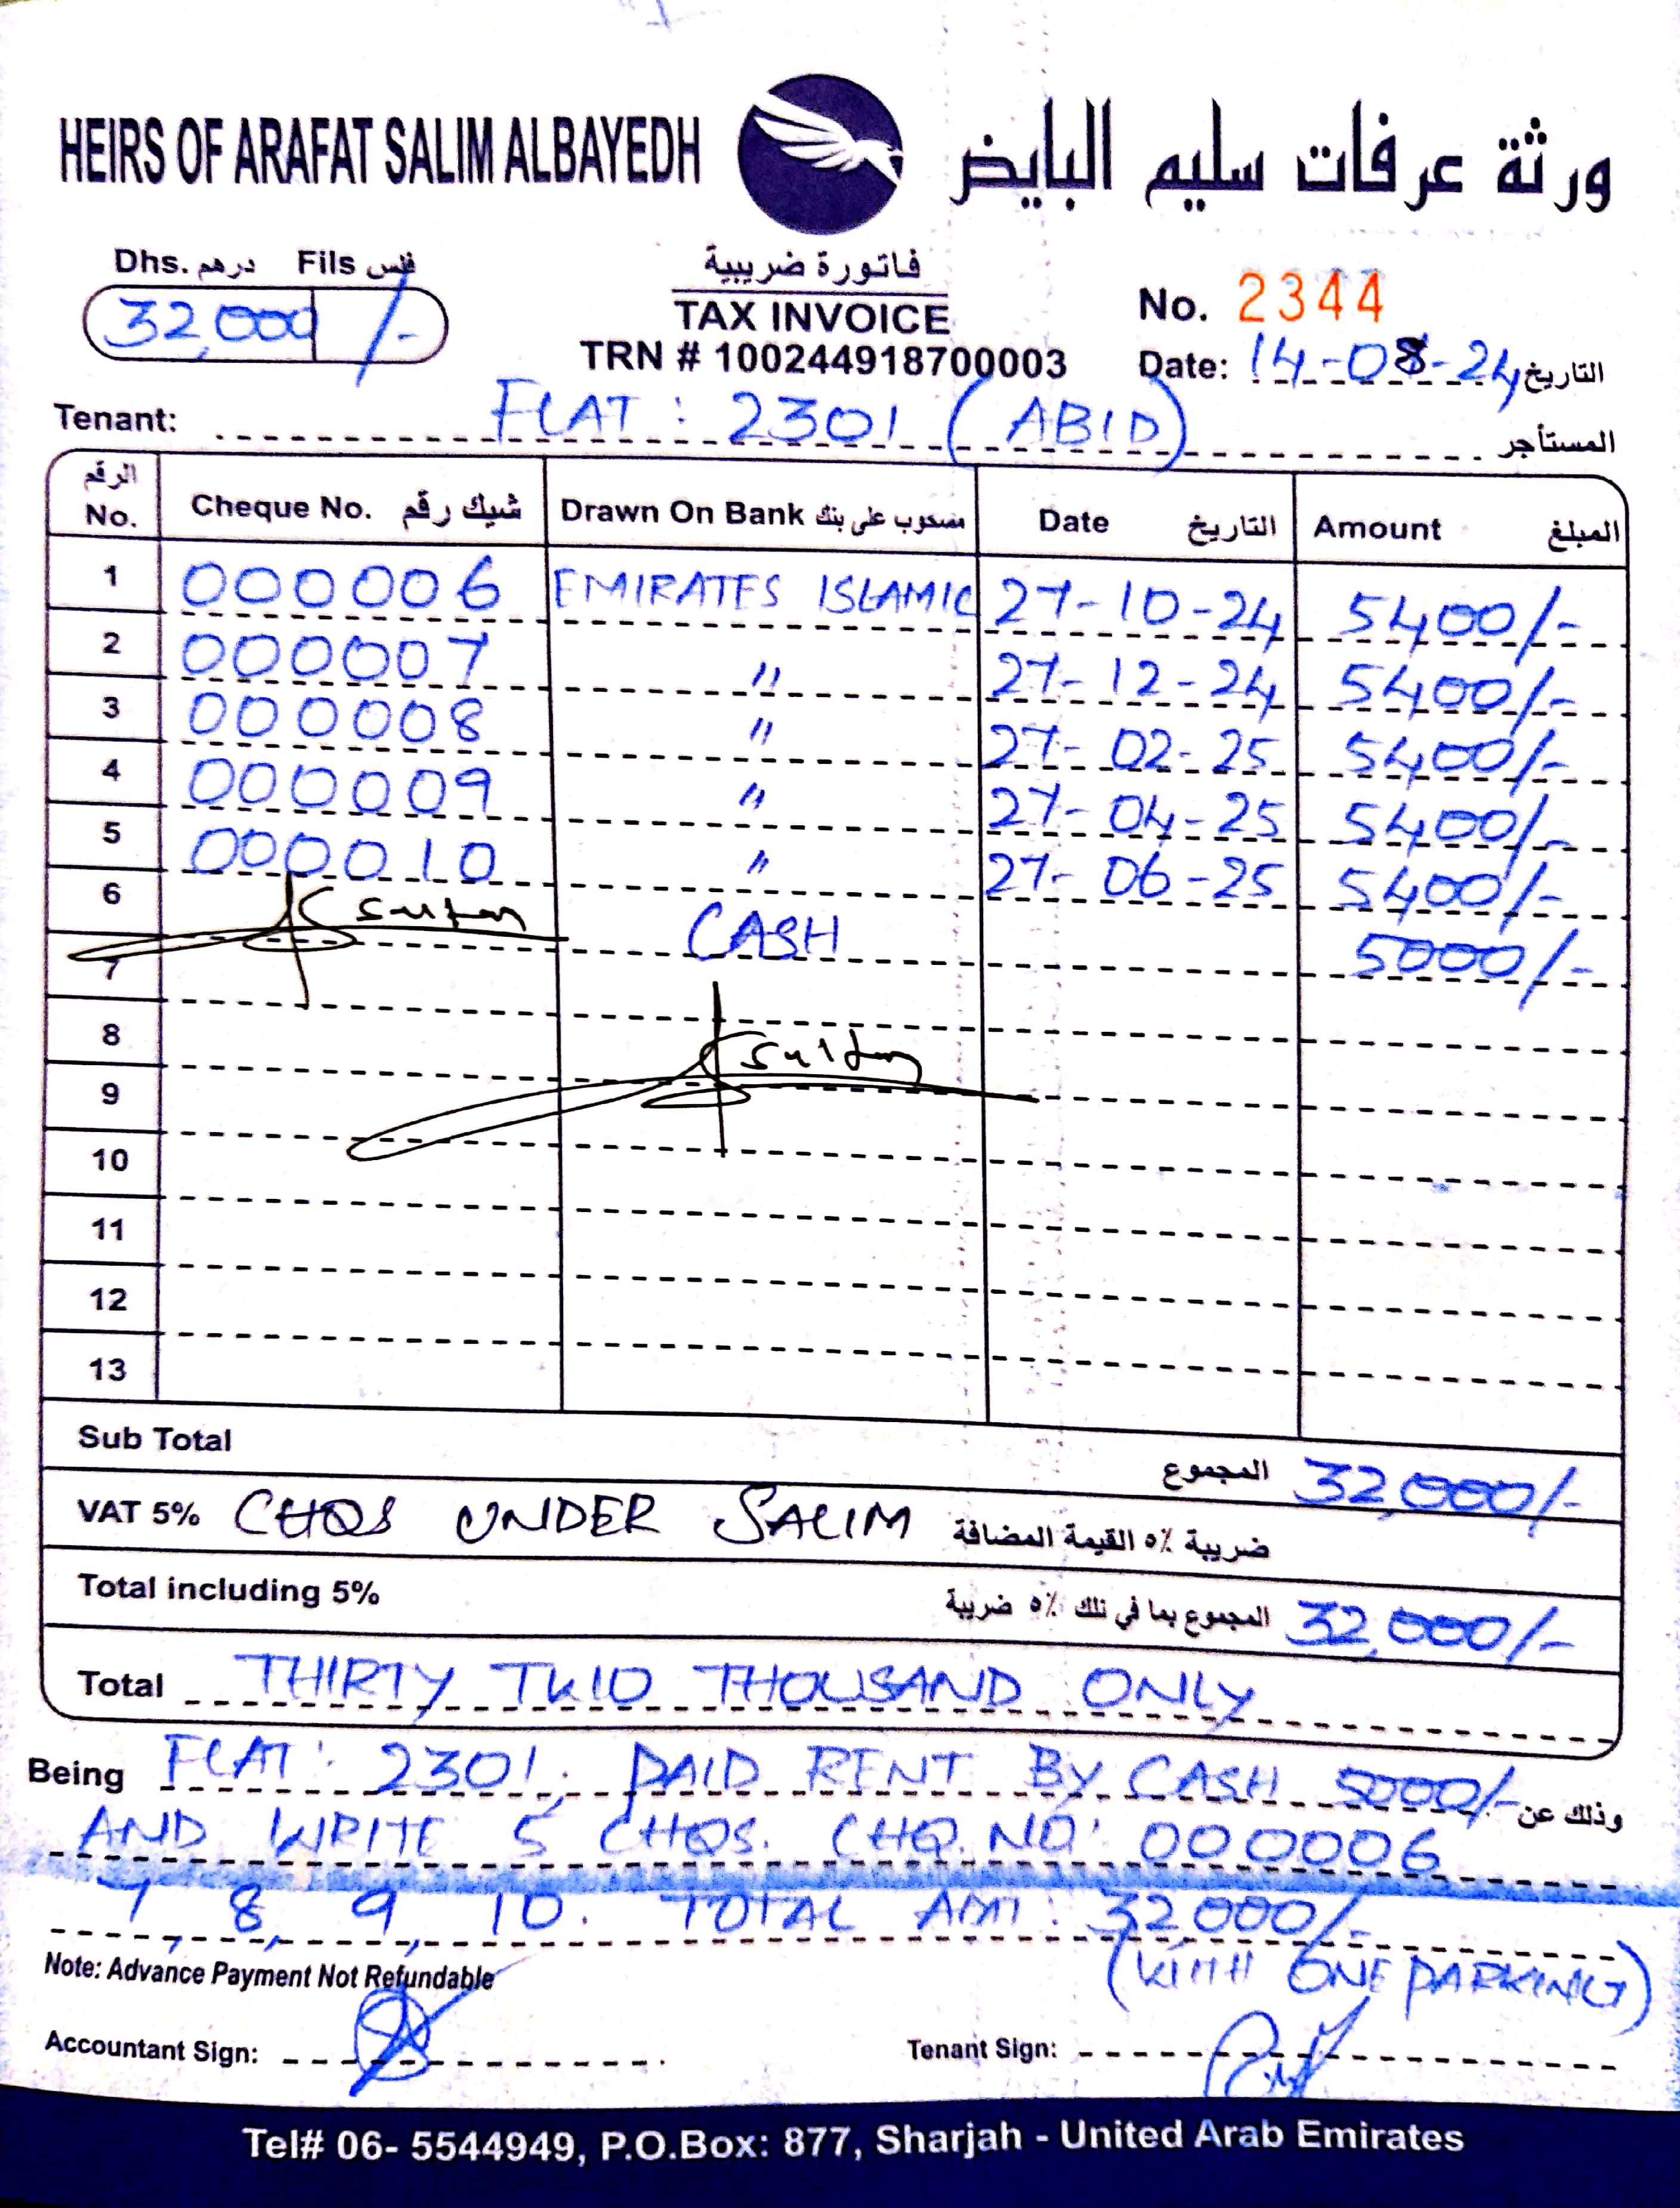 HEIRS OF ARAFAT SALIM ALBAYEDH ورثة عرفات سليم البايض
Dhs. درهم Fils فلس
32,000 /-
فاتورة ضريبية
TAX INVOICE
TRN # 100244918700003
No. 2344
Date: 14-08-24 التاريخ
Tenant: FLAT : 2301 (ABID) المستأجر
الرقم No. Cheque No. شيك رقم Drawn On Bank مسحوب على بنك Date التاريخ Amount المبلغ
1 000006 EMIRATES ISLAMIC 27-10-24 5400/-
2 000007 " 27-12-24 5400/-
3 000008 " 27-02-25 5400/-
4 000009 " 27-04-25 5400/-
5 000010 " 27-06-25 5400/-
6 Sultan CASH 5000/-
7
8 Sultan
9
10
11
12
13
Sub Total المجموع 32,000/-
VAT 5% CHQS UNDER SALIM ضريبة ٥٪ القيمة المضافة
Total including 5% المجموع بما في تلك ٥٪ ضريبة 32,000/-
Total THIRTY TWO THOUSAND ONLY
Being FLAT : 2301. PAID RENT BY CASH 5000/- وذلك عن
AND WRITE 5 CHQS. CHQ.NO: 000006
7, 8, 9, 10. TOTAL AMT : 32000/-
Note: Advance Payment Not Refundable (WITH ONE PARKING)
Accountant Sign: Tenant Sign:
Tel# 06- 5544949, P.O.Box: 877, Sharjah - United Arab Emirates